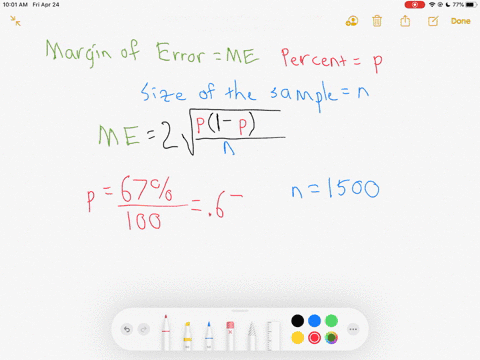 10:01 AM Fri Apr 24 77%
Done
Margin of Error = ME Percent = p
Size of the sample = n
ME = 2√(p(1-p)/n)
p = 67%/100 = .6 n = 1500